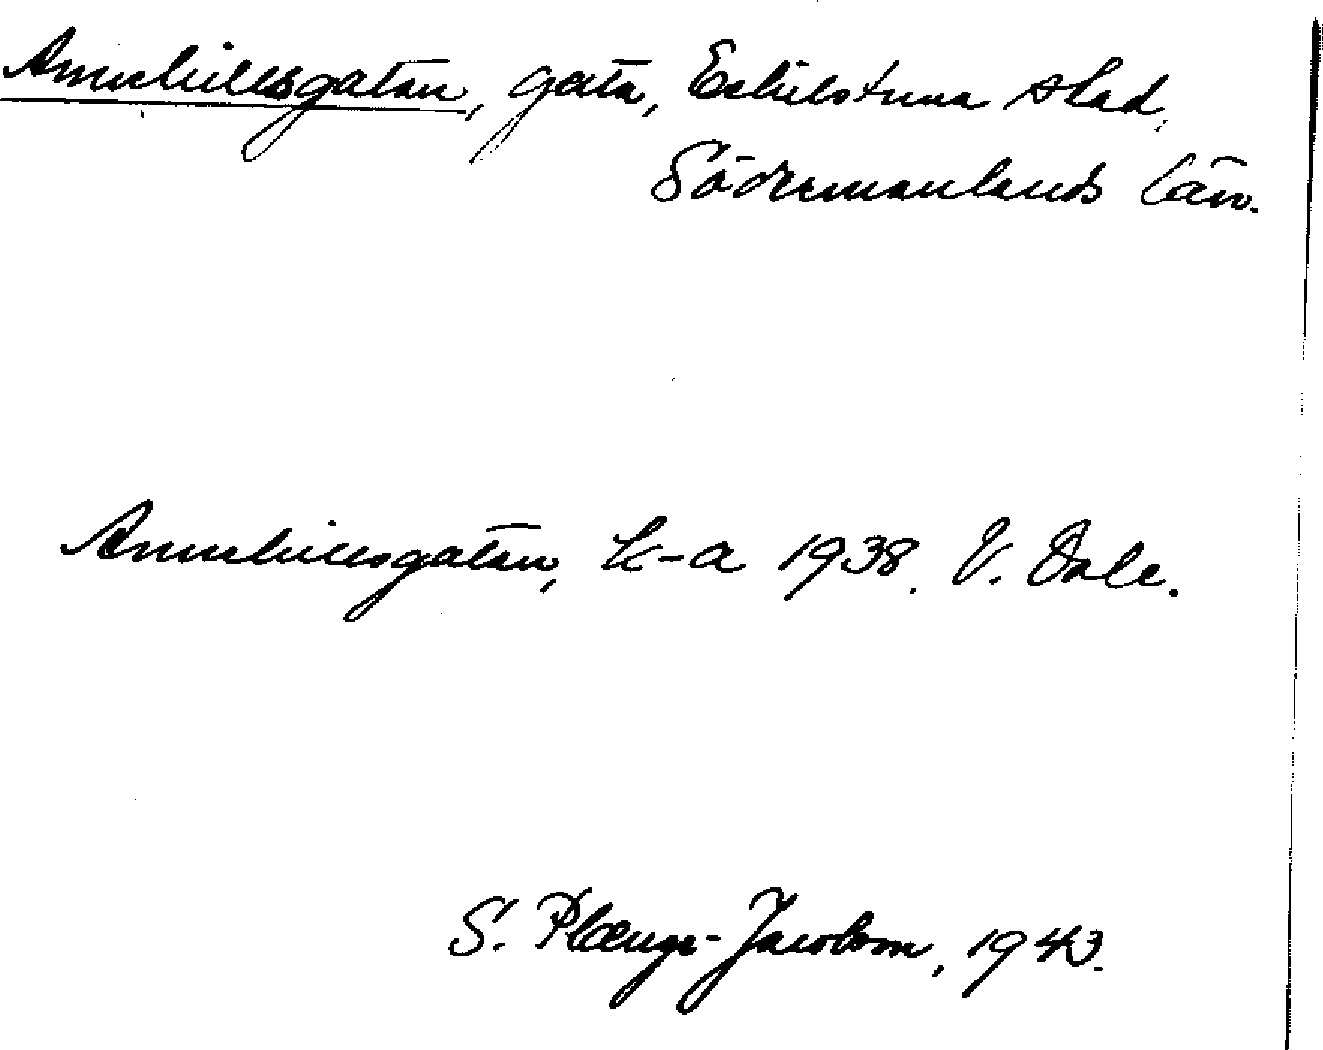 Annehillsgatan, gata, Eskilstuna stad,
Södermanlands län.
Annehillsgatan, k-a 1938. V. Dale.
S. Plænge-Jacobson, 1943.